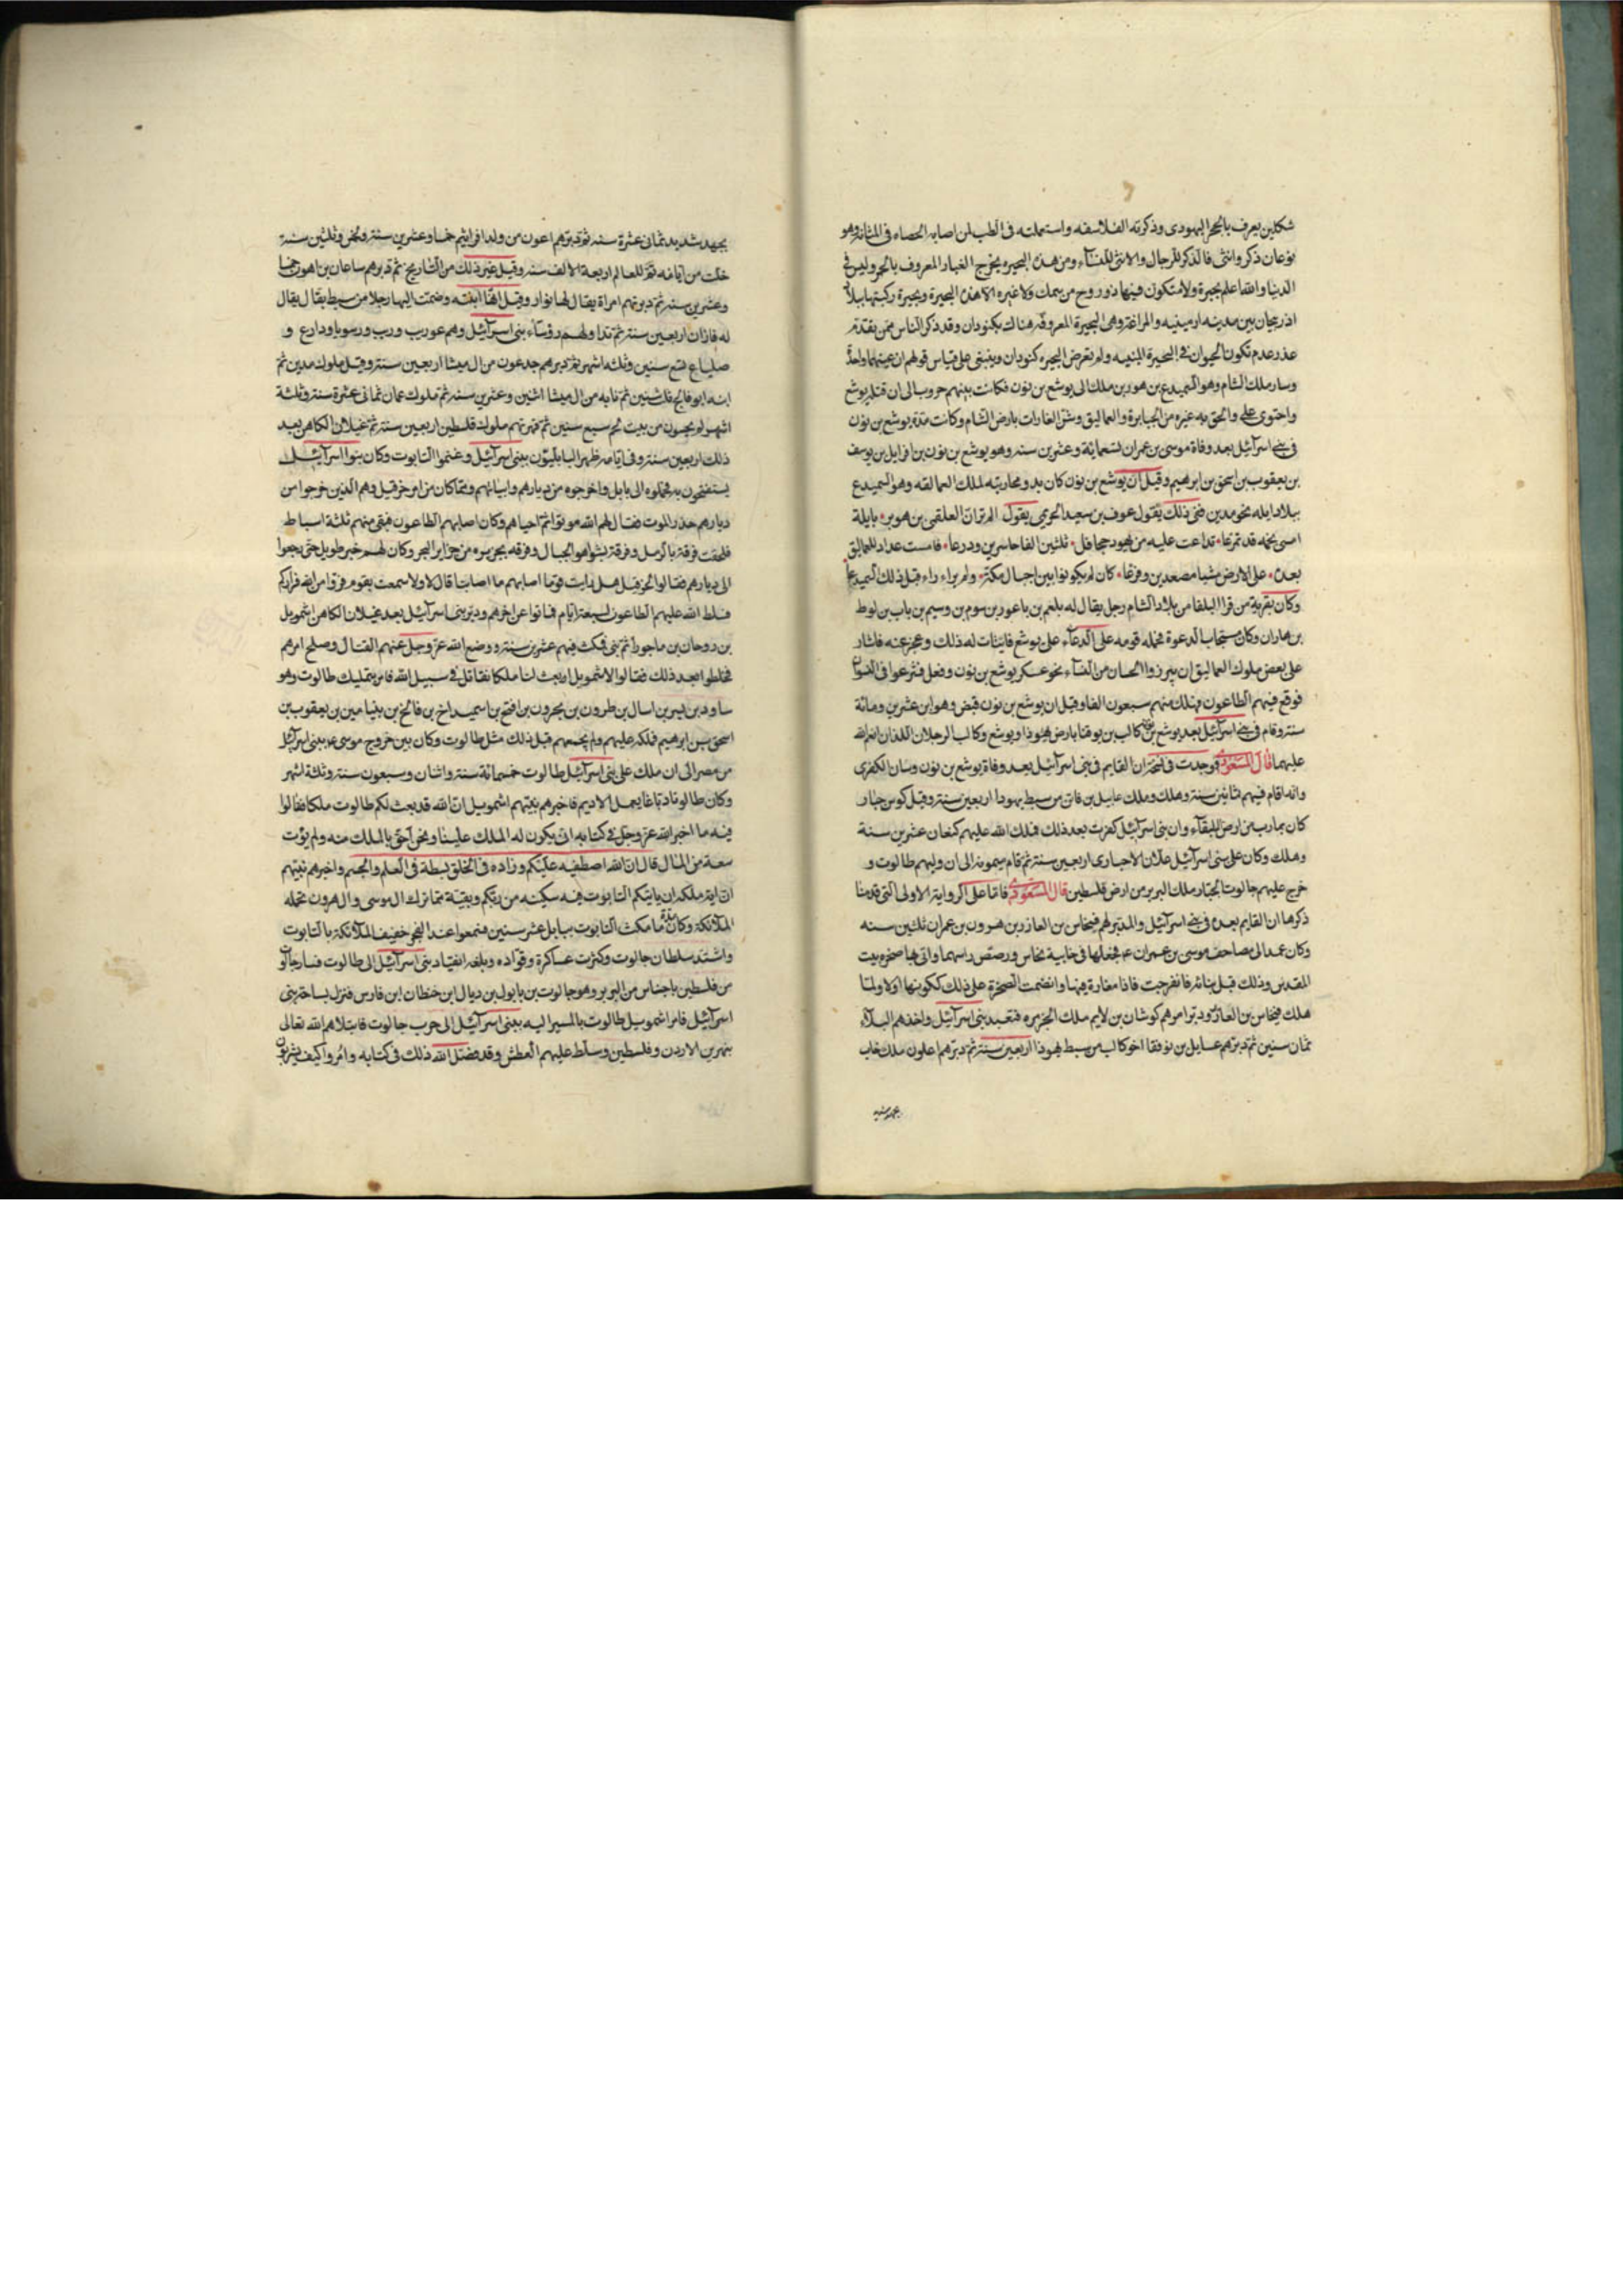 شكلين يعرف بالحجر اليهودى وذكرته الفلاسفه واستعملته فى الطب لمن اصابه الحصاء فى المثانه وهو
نوعان ذكر وانثى فالذكر للرجال والانثى للنسآء ومن هذه البحيره يخرج الغبار المعروف بالحمر وليس فى
الدنيا والله اعلم بحيرة ولا متكون فيها ذو روح من سمك ولا غيره الا هذه البحيرة وبحيرة ركبتها ببلاد
اذربيجان بين مدينه ارمينيه والمراغه وهى البحيرة المعروفة هناك بكبودان وقد ذكر الناس ممن تقدم
عذر عدم تكون الحيوان فى البحيرة المنتنيه ولم تعرض البحيره كبودان وينبغى على قياس قولهم ان عينهما واحدة
وسار ملك الشام وهو السميدع بن هوبر بن ملك الى يوشع بن نون فكانت بينهم حروب الى ان قتله يوشع
واحتوى على والحق به غيره من الجبابرة والعماليق وشن الغارات بارض الشام وكانت مدة يوشع بن نون
فى بنى اسرآئيل بعد وفاة موسى بن عمران تسعمائة وعشرين سنه وهو يوشع بن نون بن افرايل بن يوسف
بن يعقوب بن اسحق بن ابرهيم وقيل ان يوشع بن نون كان بدو محاربته لملك العمالقه وهو السميدع
ببلاد ايله نحو مدين ففى ذلك يقول عوف بن سعيد الجرهمى يقول الم تر ان العلقمى بن هوبر بايلة
امسى لحمه قد تمزعا تداعت عليه من يهود جحافل ثلثين الفا حاسرين ودرعا فامست عدادا للعماليق
بعده على الارض مشيا مصعدين وفزعا كان لم يكونوا بين اجبال مكة ولم يراء راء قبل ذلك السميدعا
وكان بقرية من قرا البلقا من بلاد الشام رجل يقال له بلعم بن باعور بن سوم بن وسيم بن باب بن لوط
بن هاران وكان مستجاب الدعوة فحمله قومه على الدعآء على يوشع فايتات له ذلك وعجز عنه فاشار
على بعض ملوك العماليق ان يبرزوا الحسان من النسآء نحو عسكر يوشع بن نون وفعل فتزعوا فى النسوان
فوقع فيهم الطاعون فهلك منهم سبعون الفا وقيل ان يوشع بن نون قبض وهو ابن عشرين ومائة
سنه وقام فى بنى اسرآئيل بعد يوشع بن نون كالب بن يوقنا بارض يهوذا ويوشع وكالب الرجلان اللذان انعم الله
عليهما قال المسعودى فوجدت فى نسخة ان القايم فى بنى اسرآئيل بعد وفاة يوشع بن نون وسان الكفرى
وانه اقام فيهم ثمانين سنة وهلك وملك عايل بن قان من سبط يهودا اربعين سنة وقيل كوس جبار
كان بمارب من ارض البلقآء وان بنى اسرآئيل كفرت بعد ذلك فملك الله عليهم كنعان عشرين سنة
وهلك وكان على بنى اسرآئيل علان الاحبارى اربعين سنة ثم قام سمونه الى ان وليهم طالوت و
خرج عليهم جالوت الجبار ملك البربر من ارض فلسطين قال المسعودى فاما على الرواية الاولى التى قدمنا
ذكرها ان القايم بعده فى بنى اسرآئيل والمدبر لهم فيخاس بن العازر بن هرون بن عمران ثلثين سنه
وكان عمد الى مصاحف موسى بن عمران ع م فجعلها فى خابية نحاس ورصص راسها واتى بها صخره بيت
المقدس وذلك قبل بنائه فانفرجت فاذا مغارة فيها وانضمت الصخرة على ذلك ككونها اولا ولما
هلك فيخاس بن العازر ودبر امرهم كوشان بن لايم ملك الجزيره فتعبد بنى اسرآئيل واخذهم البلآء
ثمان سنين ثم دبرهم عسايل بن نوفقا اخو كالب من سبط يهوذا اربعين سنة ثم دبرهم اعلون ملك خاب
بجهد شديد
بجهد شديد ثمانى عشرة سنه ثم دبرهم اعون من ولد افرائيم خمسا وعشرين سنة ونحن وثلثين سنة
خلت من ايامه تم للعالم اربعة الالف سنه وقيل غير ذلك من التاريخ ثم دبرهم ساعان بن اهون خمسا
وعشرين سنه ثم دبرتهم امراة يقال لها نوار وقيل انها ابنته وضمت اليها رجلا من سبط يقال يقال
له فازان اربعين سنة ثم تداولهم رؤسآء بنى اسرآئيل وهم عوريب وريب ورسونا ودارع و
صلياع تسع سنين وثلثه اشهر ثم دبرهم جدعون من ال ميشا اربعين سنة وقيل ملوك مدين ثم
ابنه ابو فالخ ثلث سنين ثم نايه من ال ميشا اثنين وعشرين سنه ثم ملوك عمان ثمانى عشرة سنة وثلثة
اشهر ثم بحسون من بيت لحم سبع سنين ثم قهرتهم ملوك فلسطين اربعين سنة ثم غيلان الكاهن بعد
ذلك اربعين سنة وفى ايامه ظهر البابليون ببنى اسرآئيل وغنموا التابوت وكان بنوا اسرآئيل
يستفتحون به فحملوه الى بابل واخرجوه من ديارهم وابنائهم ومما كان من امر حزقيل وهم الذين خرجوا من
ديارهم حذر الموت فقال لهم الله موتوا ثم احياهم وكان اصابهم الطاعون فبقى منهم ثلثة اسباط
فلحقت فرقة بالرمل وفرقة بشواهق الجبال وفرقه بجزيره من جزاير البحر وكان لهم خبر طويل حتى رجعوا
الى ديارهم فقالوا لحزقيل هل رايت قوما اصابهم ما اصابنا قال لا ولا سمعت بقوم فروا من الله فراركم
فسلط الله عليهم الطاعون سبعة ايام فماتوا عن اخرهم ودبر بنى اسرآئيل بعد غيلان الكاهن اشمويل
بن دوحان بن ماجورا ثم بنى فمكث فيهم عشرين سنة ووضع الله عز وجل عنهم القتال وصلح امرهم
فخلطوا بعد ذلك فقالوا لاشمويل ابعث لنا ملكا نقاتل فى سبيل الله فامر بتمليك طالوت وهو
ساود بن بسر بن اسال بن طرون بن بحرون بن افتح بن اسميداخ بن فالخ بن بنيامين بن يعقوب بن
اسحق بن ابرهيم فملكه عليهم ولم يجمعهم قبل ذلك مثل طالوت وكان بين خروج موسى ع م ببنى اسرآئيل
من مصر الى ان ملك على بنى اسرآئيل طالوت خمسمائة سنة واثنان وسبعون سنة وثلثة اشهر
وكان طالوت دباغا يعمل الاديم فاخبرهم نبيهم اشمويل ان الله قد بعث لكم طالوت ملكا فقالوا
فيه ما اخبر الله عز وجل فى كتابه انى يكون له الملك علينا ونحن احق بالملك منه ولم يؤت
سعة من المال قال ان الله اصطفيه عليكم وزاده فى الخلق بسطة فى العلم والجسم واخبرهم نبيهم
ان اية ملكه ان ياتيكم التابوت فيه سكينه من ربكم وبقية مما ترك ال موسى وال هرون تحمله
الملآئكة وكان مدة ما مكث التابوت ببابل عشر سنين فسمعوا عند الفجر حفيف الملآئكة بالتابوت
واشتد سلطان جالوت وكثرت عساكرة وقواده وبلغه انقياد بنى اسرآئيل الى طالوت فسار جالوت
من فلسطين باجناس من البربر وهو جالوت بن بايول بن ديال ابن خطان ابن فارس فنزل بساحة بنى
اسرآئيل فامر اشمويل طالوت بالمسير اليه ببنى اسرآئيل الى حرب جالوت فابتلاهم الله تعالى
بنهر بين الاردن وفلسطين وسلط عليهم العطش وقد فصل الله ذلك فى كتابه وامروا كيف يشربون